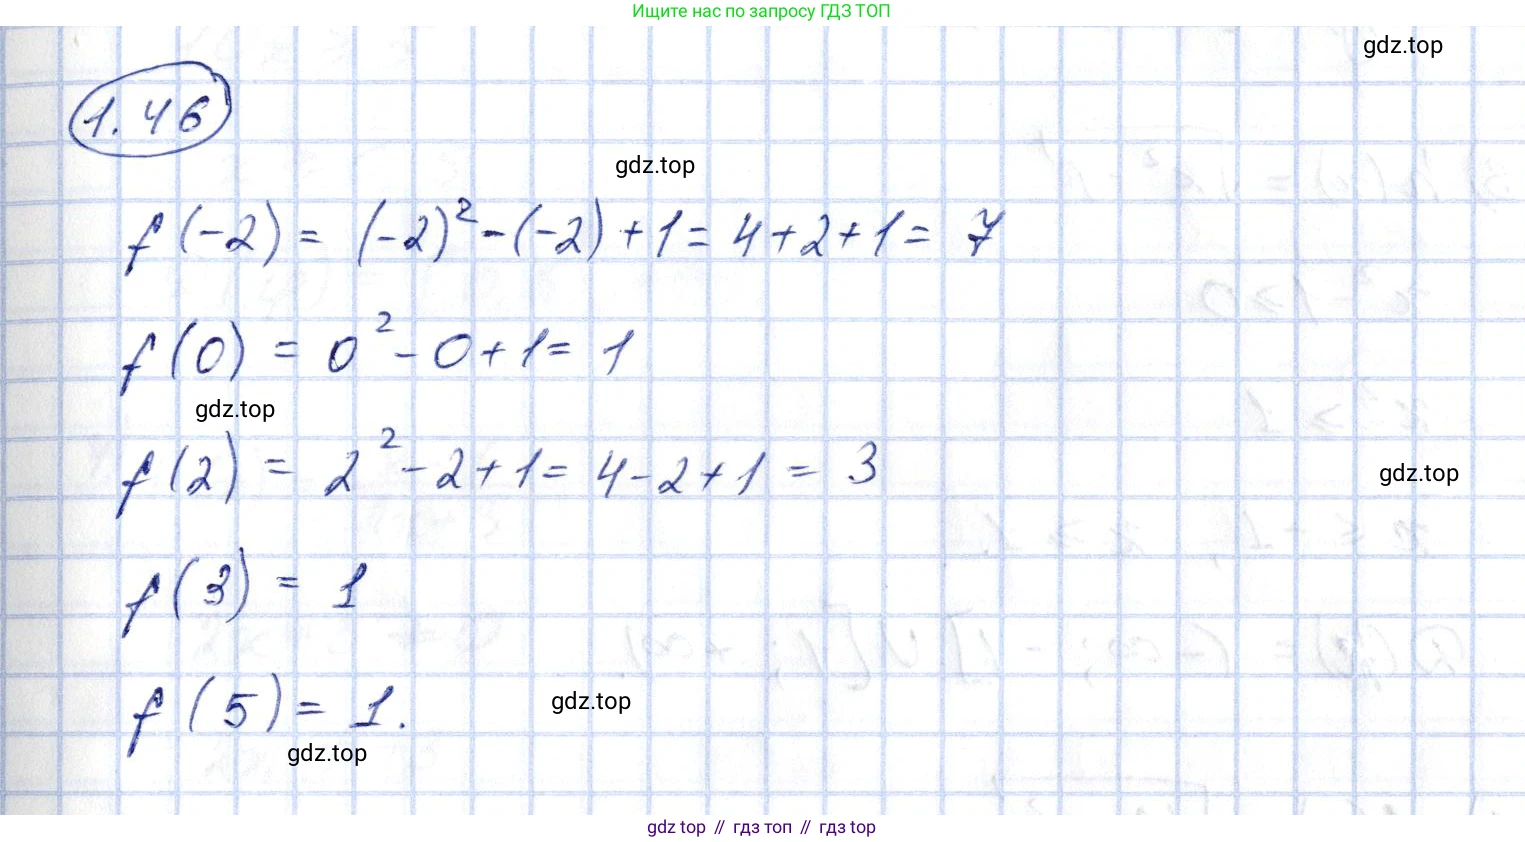 Ищите нас по запросу ГДЗ ТОП
gdz.top
1.46
gdz.top
f(-2) = (-2)² - (-2) + 1 = 4 + 2 + 1 = 7
f(0) = 0² - 0 + 1 = 1
gdz.top
f(2) = 2² - 2 + 1 = 4 - 2 + 1 = 3
gdz.top
f(3) = 1
f(5) = 1.
gdz.top
gdz.top
gdz top // гдз топ // гдз top